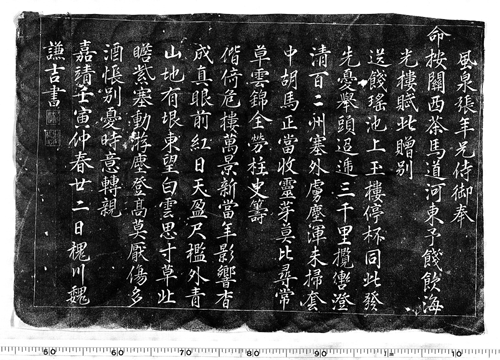 風泉張年兄侍御奉
命按關西茶馬道河東予餞飲海
光樓賦此贈別
送餞瑤池上玉樓停杯同此發
先憂舉頭迢遞三千里攬轡澄
清百二州塞外虜塵渾未掃套
中胡馬正當收靈芽莫比尋常
草雲錦全勞柱史籌
偕倚危樓萬景新當年影響杳
成真眼前紅日天盈尺檻外青
山地有垠東望白雲思寸草北
瞻紫塞動游塵登高莫厭傷多
酒悵別憂時意轉親
嘉靖壬寅仲春廿二日槐川魏
謙吉書
60
70
80
90
100
10